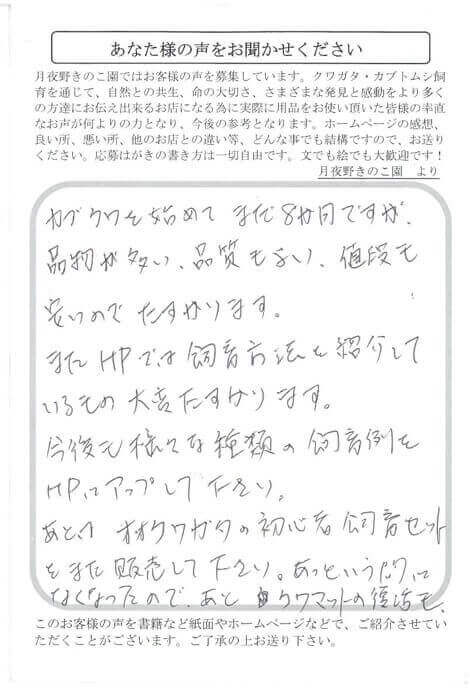 あなた様の声をお聞かせください
月夜野きのこ園ではお客様の声を募集しています。クワガタ・カブトムシ飼
育を通じて、自然との共生、命の大切さ、さまざまな発見と感動をより多く
の方達にお伝え出来るお店になる為に実際に用品をお使い頂いた皆様の率直
なお声が何よりの力となり、今後の参考となります。ホームページの感想、
良い所、悪い所、他のお店との違い等、どんな事でも結構ですので、お送り
ください。応募はがきの書き方は一切自由です。文でも絵でも大歓迎です！
月夜野きのこ園 より
カブクワを始めて まだ8か月ですが、
品物が多い、品質も良い、値段も
安いので たすかります。
またHPでは飼育方法も紹介して
いるもの 大変たすかります。
今後も様々な種類の飼育例を
HPにアップして下さい。
あとは オオクワガタの初心者飼育セット
をまた販売して下さい。あっという間に
なくなったので、あと クワマットの復活も、
このお客様の声を書籍など紙面やホームページなどで、ご紹介させてい
ただくことがございます。ご了承の上お送り下さい。